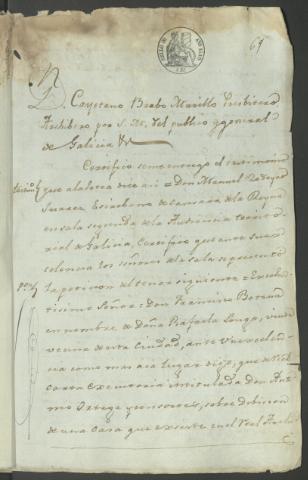 69
D. Cayetano Brabo Murillo Presbitero
Archibero por S. M. del publico y general
de Galicia &a
Certifico se me entrego el testimonio
que a la letra dice asi = Don Manuel
Suarez Escribano de Camara de la Reyna
en sala segunda de la Audiencia territo
rial de Galicia, Certifico que ante su ex
celencia los señores de la sala se presentó
la peticion del tenor siguiente = Excelen
tisimo Señor = Don Francisco
en nombre de Doña Rafaela Longo, viuda
vecina de esta Ciudad, ante Vuexcelen
cia como mas aca lugar digo, que de Real
carta executoria intitulada Don Anto
nio Ortega y consores, sobre division
de una Casa que existe en el Real